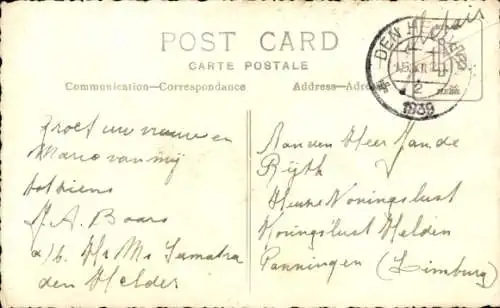 POST CARD
CARTE POSTALE
Communication—Correspondance
Address—
DEN HELDER
2
1939
Groet uw vrouw en
Marie van mij
tot ziens
J. A. Baars
a/b. Hr Ms Sumatra
den Helder
Aan den Heer van de
Rijth
Huize Koningslust
Koningslust Helden
Panningen (Limburg)